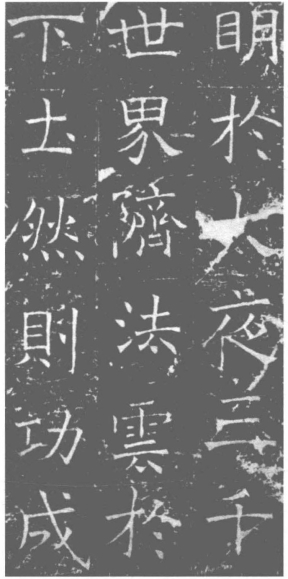 眀於大夜三千
世界隮法雲於
下圡然則功成